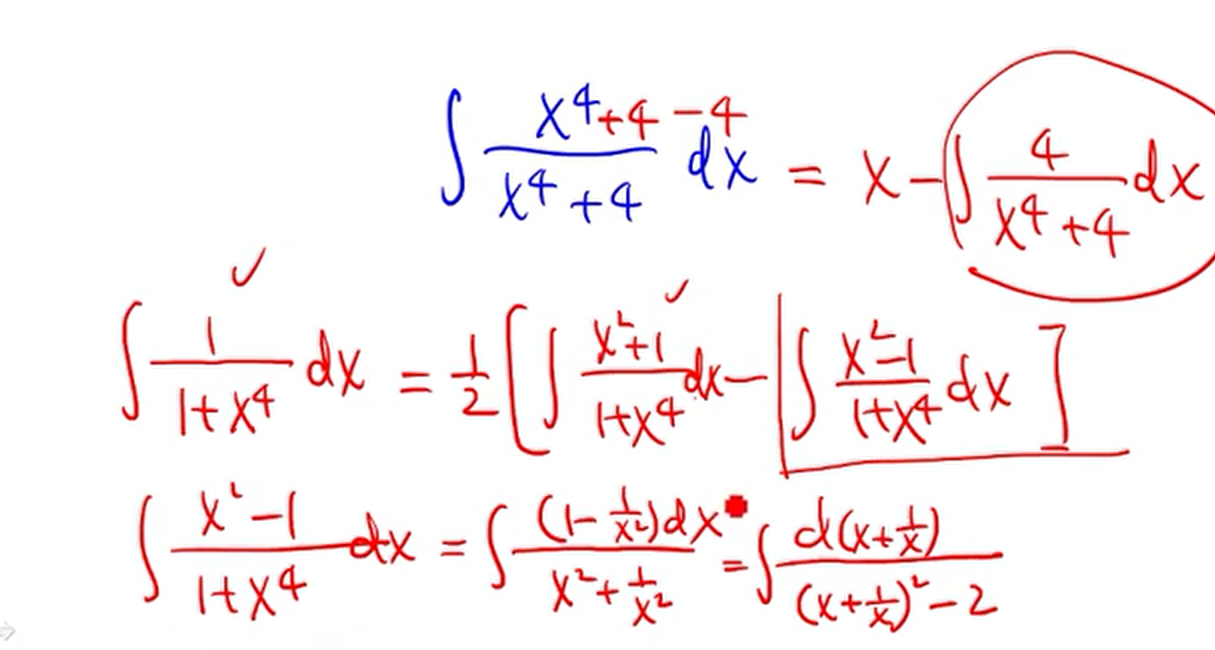 ∫ (x⁴+4−4)/(x⁴+4) dx = x − ∫ 4/(x⁴+4) dx
∫ 1/(1+x⁴) dx = 1/2 [ ∫ (x²+1)/(1+x⁴) dx − ∫ (x²−1)/(1+x⁴) dx ]
∫ (x²−1)/(1+x⁴) dx = ∫ (1−1/x²)dx/(x²+1/x²) = ∫ d(x+1/x)/((x+1/x)²−2)